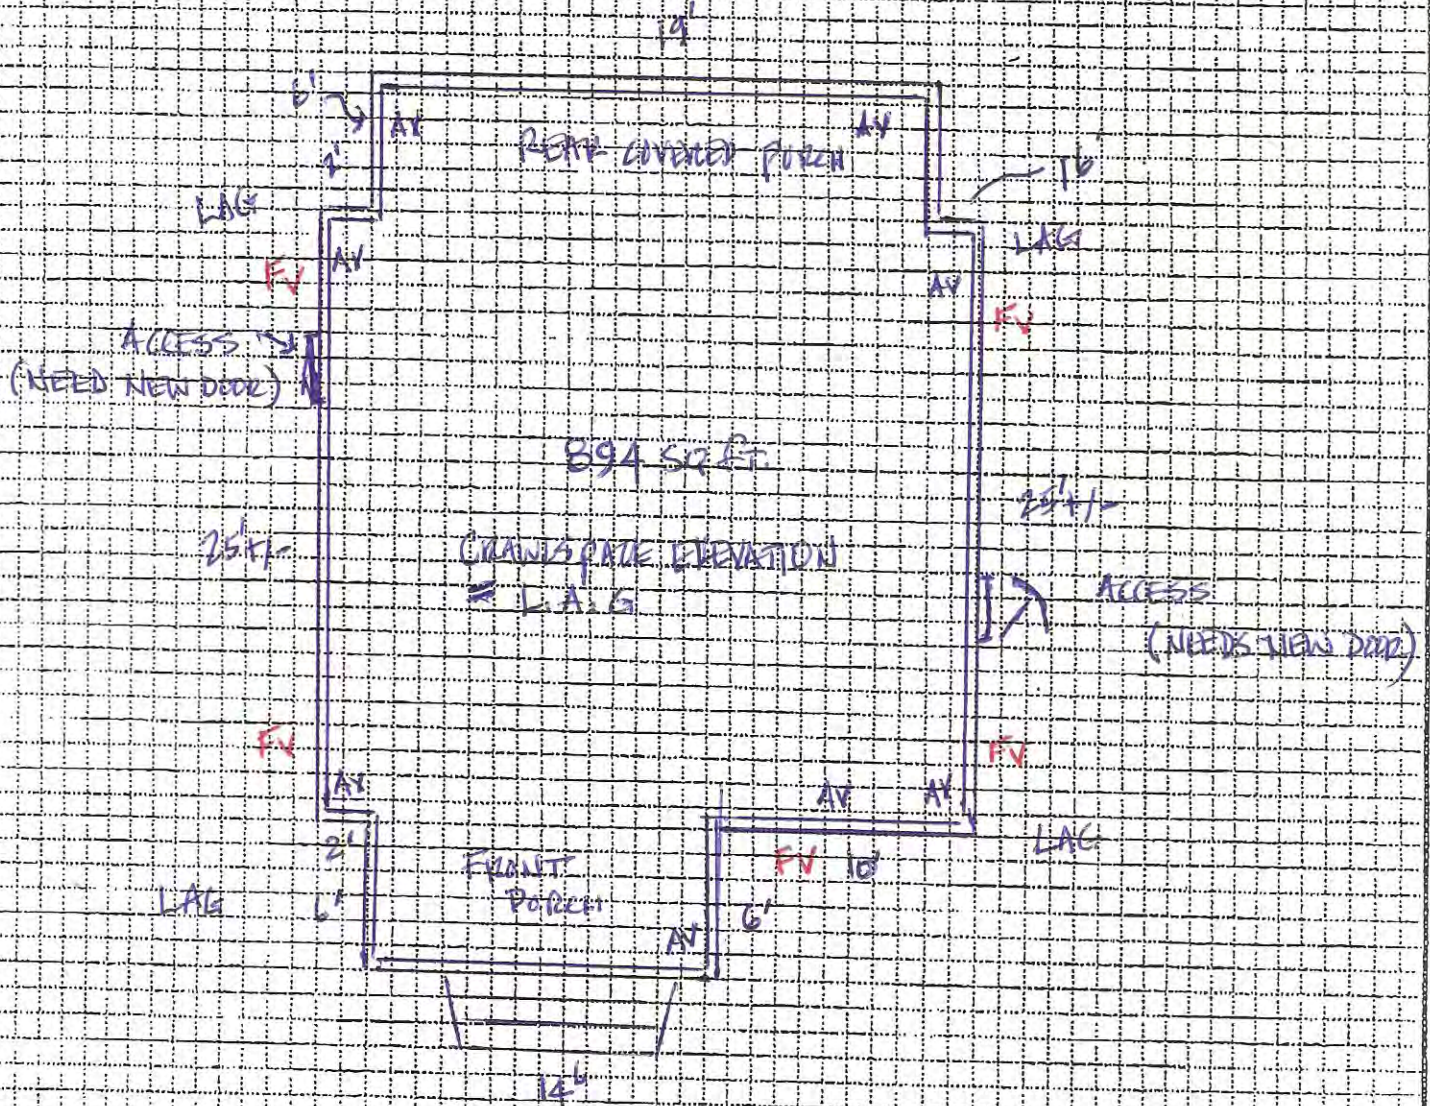 19'
6'
AV
AV
REAR COVERED PORCH
2'
LAG
LAG
AV
FV
AV
FV
ACCESS
(NEED NEW DOOR)
894 SQ FT.
25'+/-
25'+/-
CRAWLSPACE ELEVATION
= L.A.G
ACCESS
(NEEDS NEW DOOR)
FV
FV
AV
AV
AV
LAG
2'
FRONT
PORCH
FV 10'
LAG
6'
6'
AV
14'